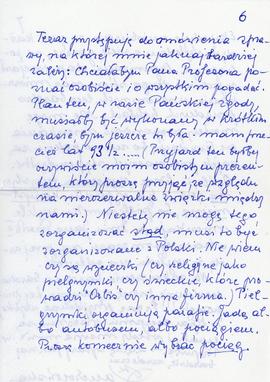 6
Teraz przystępuję do omówienia spra-
wy, na której mnie jaknajbardziej
zależy: Chciałabym Pana Profesora po-
znać osobiście i o wszystkim pogadać.
Plan ten, w razie Pańskiej zgody
musiałby być wykonany w krótkim
czasie bym jeszcze tu była! mam prze-
cież lat 93 1/2 .... (Przyjazd ten byłby
oczywiście moim osobistym prezen-
tem, który proszę przyjąć ze względu
na nierozerwalne związki między
nami.) Niestety nie mogę tego
zorganizować stąd, musi to być
zorganizowane z Polski. Nie wiem
czy są wycieczki (czy religijne jako
pielgrzymki czy świeckie, które pro-
wadzi "Orbis" czy inna firma.) Piel-
grzymki organizują parafie. Jadą al-
bo autobusem, albo pociągiem.
Proszę koniecznie wybrać pociąg.